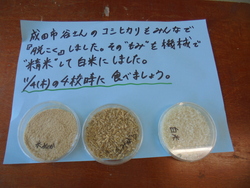 成田市谷さんのコシヒカリをみんなで
"脱こく"しました。その"もみ"を機械で
"精米"して白米にしました。
11/4(木)の4校時に食べましょう。
白米